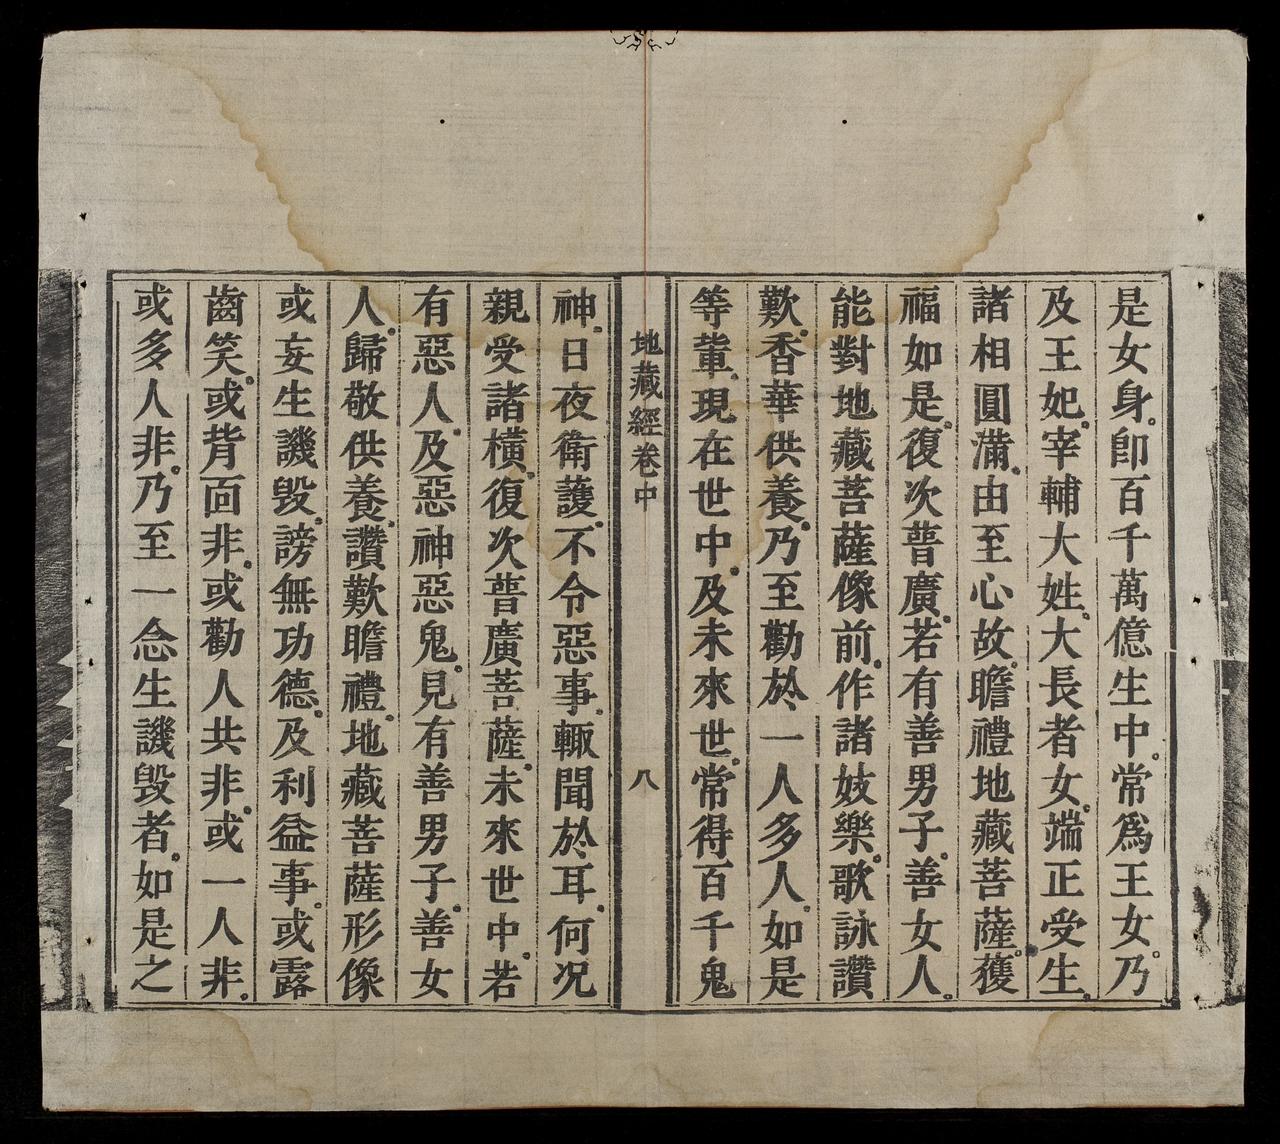 是女身。卽百千萬億生中。常爲王女。乃
及王妃。宰輔大姓。大長者女。端正受生。
諸相圓滿。由至心故。瞻禮地藏菩薩。獲
福如是。復次普廣。若有善男子。善女人。
能對地藏菩薩像前。作諸妓樂。歌詠讚
歎。香華供養。乃至勸於一人多人。如是
等輩。現在世中。及未來世。常得百千鬼
地藏經卷中 八
神。日夜衛護。不令惡事。輙聞於耳。何况
親受諸橫。復次普廣菩薩。未來世中。若
有惡人。及惡神惡鬼。見有善男子。善女
人。歸敬供養。讚歎瞻禮。地藏菩薩形像
或妄生譏毁。謗無功德。及利益事。或露
齒笑。或背面非。或勸人共非。或一人非。
或多人非。乃至一念生譏毁者。如是之